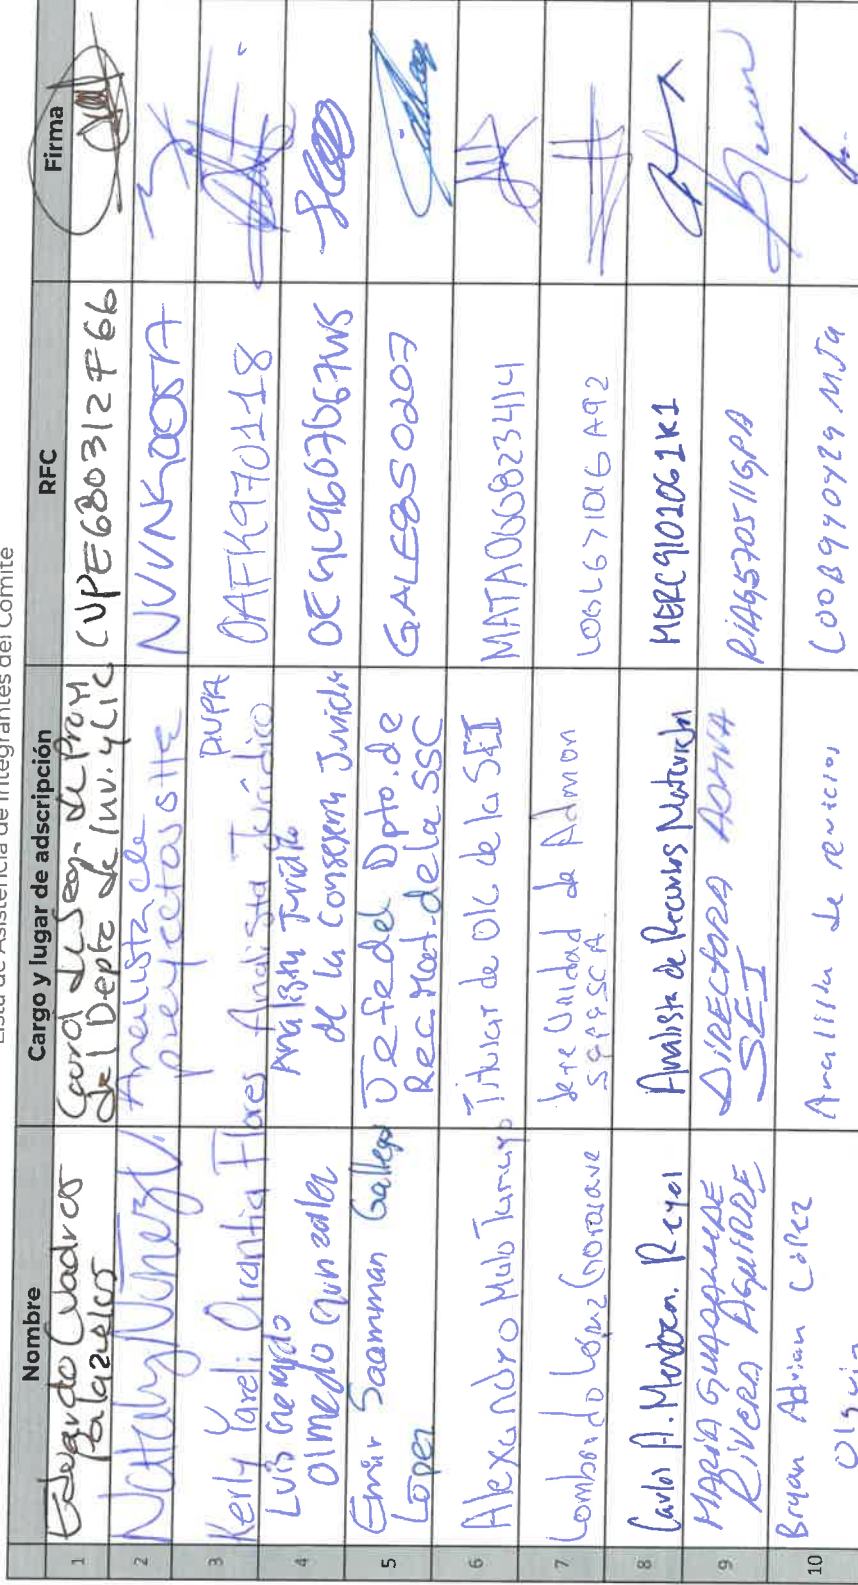 Lista de Asistencia de Integrantes del Comité
Nombre Cargo y lugar de adscripción RFC Firma
1 Eduardo Cuadros Palazuelos Coord de Seg. de Proy. del Depto de Inv. y Lic CUPE680312F66
2 Nataly Nuñez V. Analista de proyectos
3 Kerly Yareli Orantia Flores Analista Jurídico DUPA OAFK970118
4 Luis Gerardo Olmedo Gonzalez Analista Juridico de la Consejeria Juridica OEGL960706
5 Emir Saamman Gallegos Lopez Jefe del Dpto. de Rec. Mat. de la SSC GALE850207
6 Alexandro Tamayo Titular de OIC de la SEI MATA0608234I4
7 Lombardo López Jefe Unidad de Admon LOGL671016A92
8 Carlos A. Mendoza Reyes Analista de Recursos Materiales MERC9102061K1
9 MARIA GUADALUPE RIVERA AGUIRRE DIRECTORA ADMVA SEI RIAG570511GPA
10 Bryan Adrian López Analista de servicios LOOB940429